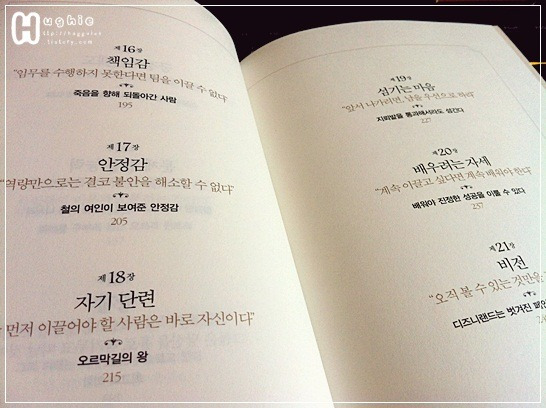 Hughie
제16장
책임감
"임무를 수행하지 못한다면 팀을 이끌 수 없다"
죽음을 향해 되돌아간 사람
195
제17장
안정감
"역량만으로는 결코 불안을 해소할 수 없다"
철의 여인이 보여준 안정감
205
제18장
자기 단련
먼저 이끌어야 할 사람은 바로 자신이다"
오르막길의 왕
215
제19장
섬기는 마음
"앞서 나가려면, 남을 우선으로 하라"
지뢰밭을 통과해서라도 섬긴다
227
제20장
배우려는 자세
"계속 이끌고 싶다면 계속 배워야 한다"
배워야 진정한 성공을 이룰 수 있다
237
제21장
비전
"오직 볼 수 있는 것만을
디즈니랜드는 벗겨진 페인